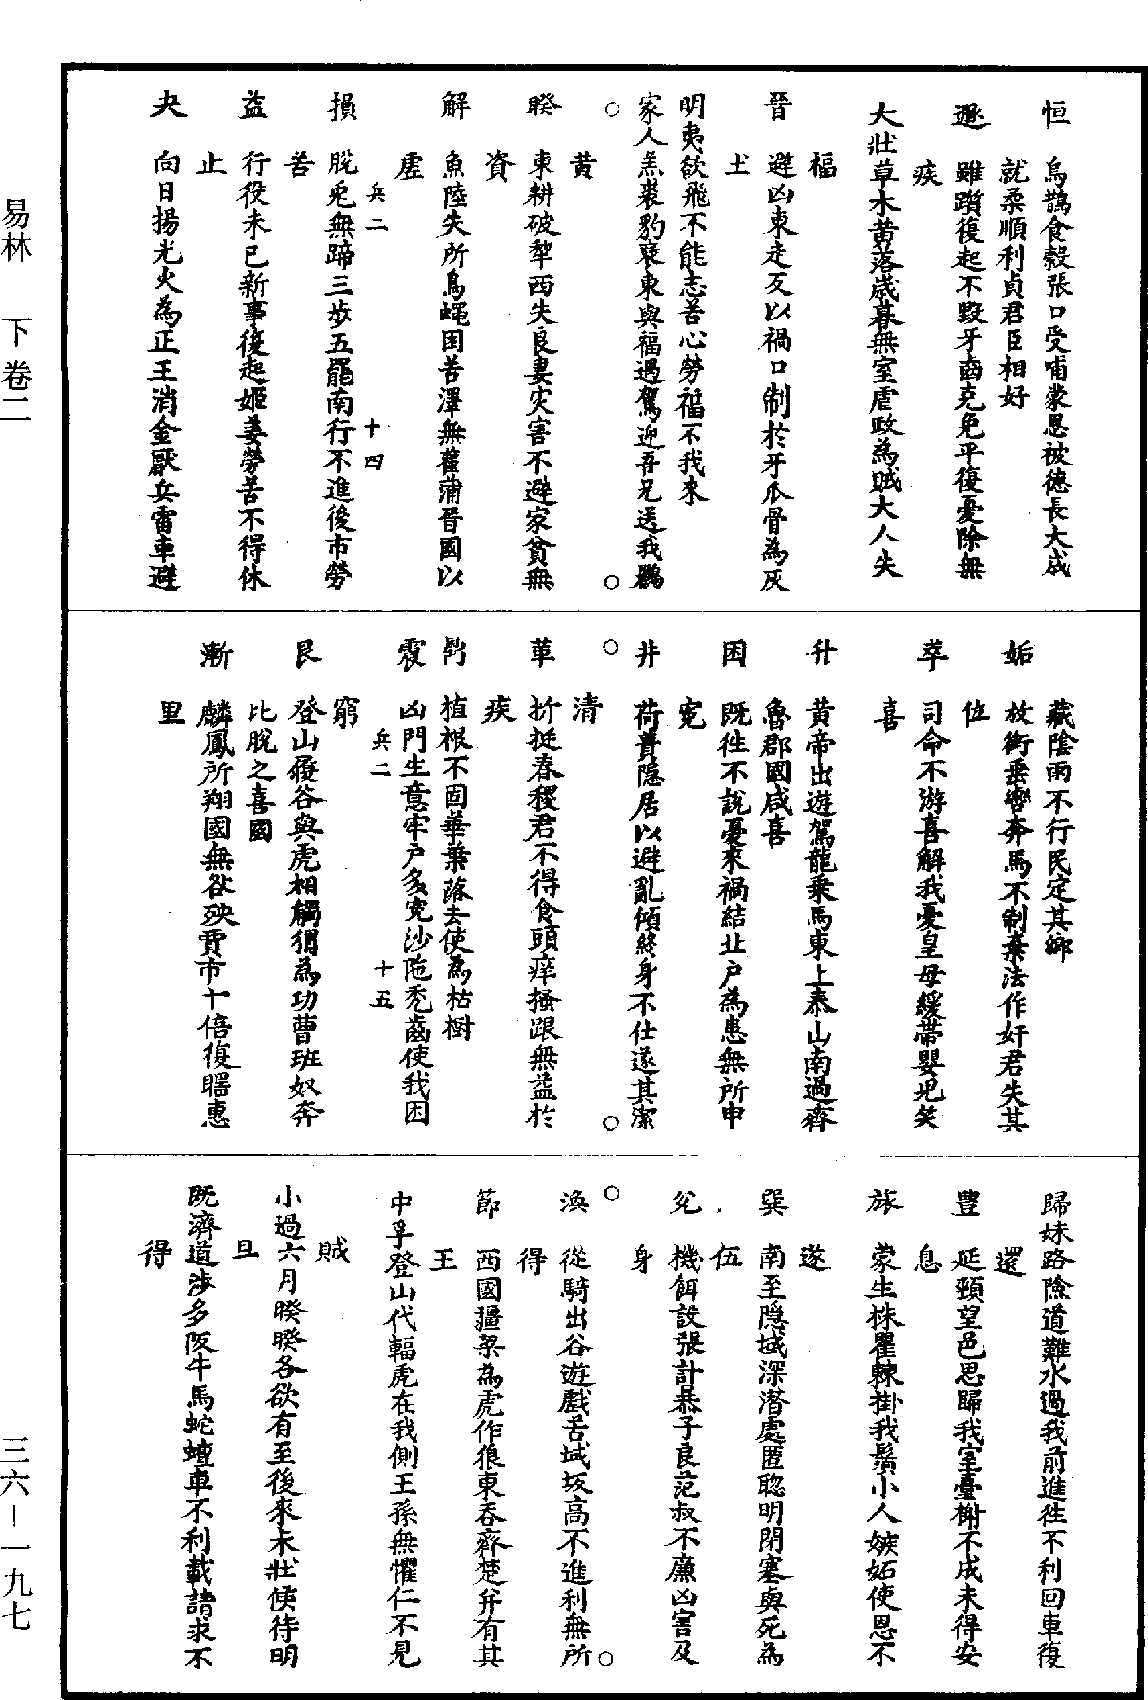 恒　烏鵲食穀張口受哺蒙恩被德長大成
就柔順利貞君臣相好
遯　雖躓復起不毀牙齒克免平復憂除無
疾
大壯草木黃落歲暮無室虐政為賊大人失
福
晉　避凶東走反以禍口制於牙爪骨為灰
土
明夷欲飛不能志苦心勞福不我來
家人羔裘豹袪東與福遇駕迎吾兄送我鸝
黃
睽　東耕破犂西失良妻災害不避家貧無
資
解　魚陸失所鳥蠅困苦澤無萑蒲晉國以
虛
兵二　十四
損　脫兎無蹄三步五罷南行不進後市勞
苦
益　行役未已新事復起姬姜勞苦不得休
止
夬　向日揚光火為正王消金厭兵雷車避
藏陰雨不行民定其鄉
姤　放銜垂轡奔馬不制棄法作奸君失其
位
萃　司命不游喜解我憂皇母緩帶嬰兒笑
喜
升　黃帝出遊駕龍乘馬東上泰山南過齊
魯郡國咸喜
困　既往不說憂來禍結北户為患無所申
寃
井　荷蕢隱居以避亂傾終身不仕遂其潔
清
革　折挺春稷君不得食頭痒搔跟無益於
疾
鼎　植根不固華葉落去使為枯樹
震　凶門生意牢户多寃沙陁禿齒使我困
兵二　十五
窮
艮　登山履谷與虎相觸猬為功曹班奴奔
比脫之喜國
漸　麟鳳所翔國無咎殃賈市十倍復暱惠
里
歸妹路險道難水遏我前進往不利回車復
還
豐　延頸望邑思歸我室臺榭不成未得安
息
旅　蒙生株瞿棘掛我鬚小人嫉妬使恩不
遂
巽　南至隱域深潛處匿聦明閉塞與死為
伍
兌　機餌設張計暴子良范叔不廉凶害及
身
渙　從騎出谷遊戲苦域坂高不進利無所
得
節　西國彊梁為虎作狼東吞齊楚并有其
王
中孚登山代輻虎在我側王孫無懼仁不見
賊
小過六月睽睽各欲有至後來未壯俟待明
旦
既濟道涉多阪牛馬蛇蟺車不利載請求不
得
易林　下卷二
三六－一九七